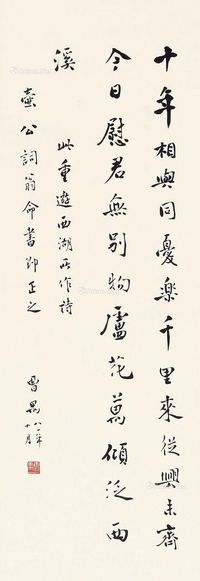 十年相與同憂樂千里來從興未齊
今日慰君無別物蘆花萬傾泛西
溪
此重遊西湖所作詩
壺公詞翁命書即正之
曼昜 八一年
十一月